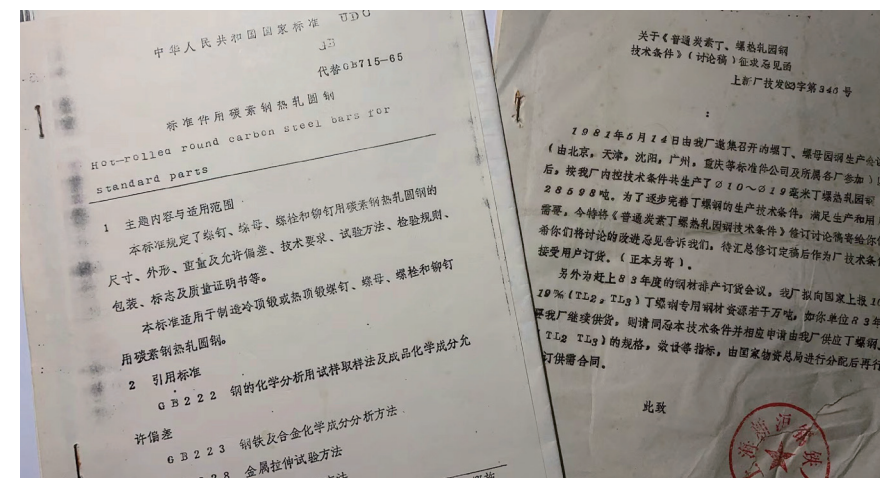 中华人民共和国国家标准
UDC
代替GB715-65
标准件用碳素钢热轧圆钢
Hot-rolled round carbon steel bars for
standard parts
1 主题内容与适用范围
本标准规定了螺钉、螺母、螺栓和铆钉用碳素钢热轧圆钢的
尺寸、外形、重量及允许偏差、技术要求、试验方法、检验规则、
包装、标志及质量证明书等。
本标准适用于制造冷顶锻或热顶锻螺钉、螺母、螺栓和铆钉
用碳素钢热轧圆钢。
2 引用标准
GB222 钢的化学分析用试样取样法及成品化学成分允
许偏差
GB223 钢铁及合金化学成分分析方法
28 金属拉伸试验方法
关于《普通炭素丁、螺热轧园钢
技术条件》(讨论稿)征求意见函
上新厂技发 字第340号
:
1981年5月14日由我厂邀集召开的螺丁、螺母园钢生产会
(由北京,天津,沈阳,广州,重庆等标准件公司及所属各厂参加)
后,按我厂内控技术条件共生产了∅10~∅19毫米丁螺热轧园钢
28598吨。为了逐步完善丁螺钢的生产技术条件,满足生产和用
需要,今特将《普通炭素丁螺热轧园钢技术条件》修订讨论稿寄给你
希你们将讨论的改进意见告诉我们,待汇总修订定稿后作为厂技术条
接受用户订货。(正本另寄)。
另外为赶上83年度的钢材排产订货会议,我厂拟向国家上报1
19%(TL2,TL3)丁螺钢专用钢材资源若干万吨,如你单位83年
要我厂继续供货,则请同意本技术条件并相应申请由我厂供应丁螺钢
TL2 TL3)的规格,数量等指标,由国家物资总局进行分配后再行
订供需合同。
此致
海新沪钢铁